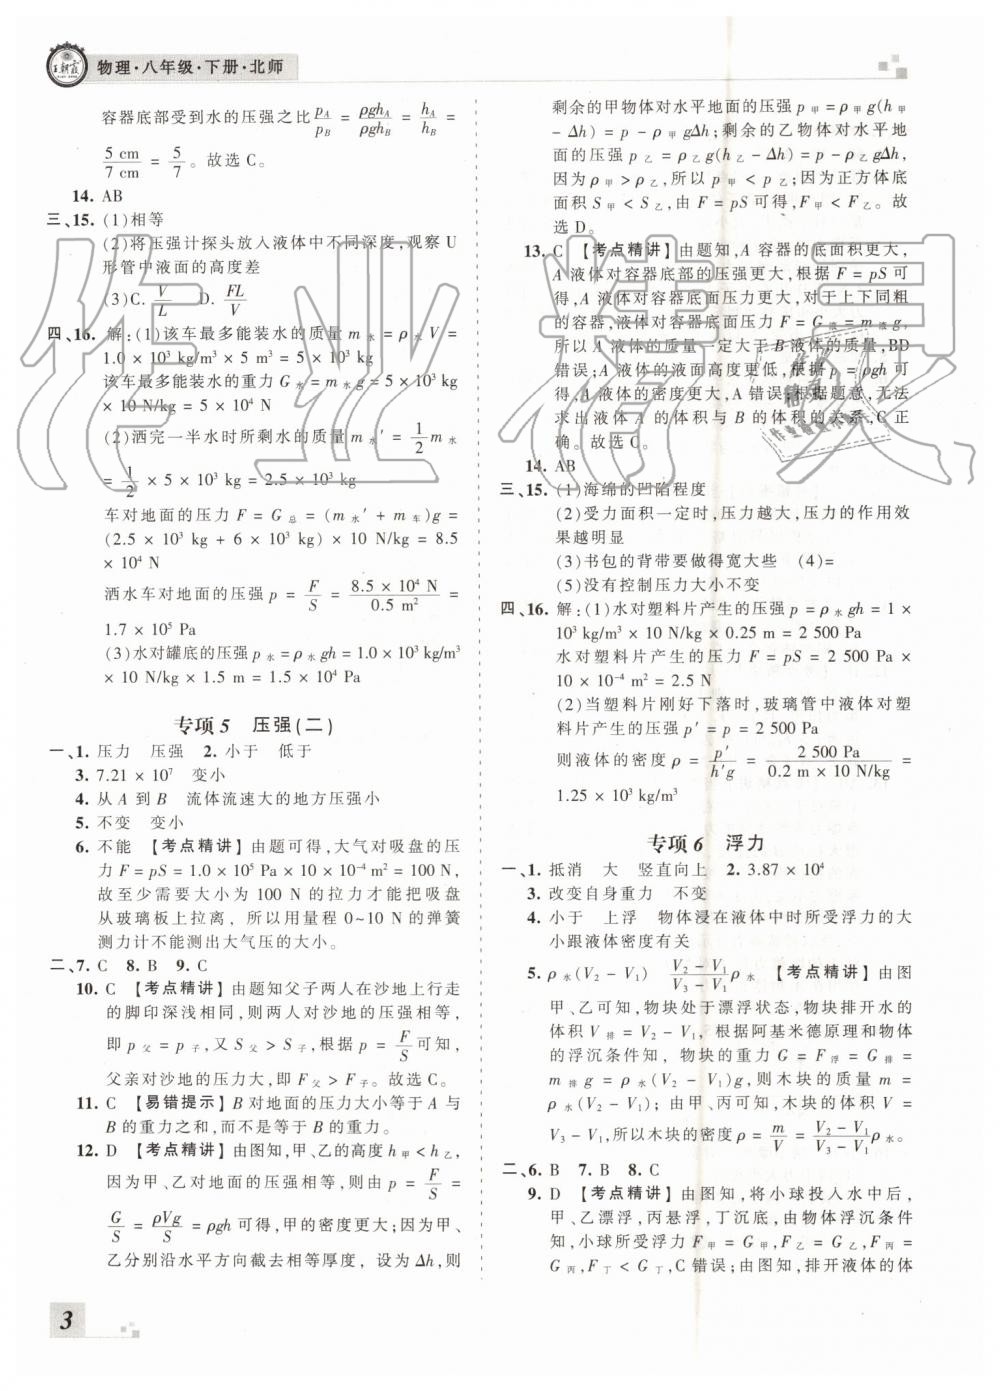 王朝霞
物理·八年级·下册·北师
容器底部受到水的压强之比p_A/p_B = ρgh_A/ρgh_B = h_A/h_B =
5 cm/7 cm = 5/7。故选 C。
14. AB
三、15. (1)相等
(2)将压强计探头放入液体中不同深度,观察 U
形管中液面的高度差
(3)C. V/L　D. FL/V
四、16. 解:(1)该车最多能装水的质量 m水 = ρ水V =
1.0 × 10³ kg/m³ × 5 m³ = 5 × 10³ kg
该车最多能装水的重力 G水 = m水g = 5 × 10³ kg
× 10 N/kg = 5 × 10⁴ N
(2)洒完一半水时所剩水的质量 m水′ = 1/2 m水
= 1/2 × 5 × 10³ kg = 2.5 × 10³ kg
车对地面的压力 F = G总 = (m水′ + m车)g =
(2.5 × 10³ kg + 6 × 10³ kg) × 10 N/kg = 8.5
× 10⁴ N
洒水车对地面的压强 p = F/S = 8.5 × 10⁴ N/0.5 m² =
1.7 × 10⁵ Pa
(3)水对罐底的压强 p水 = ρ水gh = 1.0 × 10³ kg/m³
× 10 N/kg × 1.5 m = 1.5 × 10⁴ Pa
专项 5　压强(二)
一、1. 压力　压强　2. 小于　低于
3. 7.21 × 10⁷　变小
4. 从 A 到 B　流体流速大的地方压强小
5. 不变　变小
6. 不能　【考点精讲】由题可得,大气对吸盘的压
力 F = pS = 1.0 × 10⁵ Pa × 10 × 10⁻⁴ m² = 100 N,
故至少需要大小为 100 N 的拉力才能把吸盘
从玻璃板上拉离,所以用量程 0~10 N 的弹簧
测力计不能测出大气压的大小。
二、7. C　8. B　9. C
10. C　【考点精讲】由题知父子两人在沙地上行走
的脚印深浅相同,则两人对沙地的压强相等,
即 p父 = p子,又 S父 > S子,根据 p = F/S 可知,
父亲对沙地的压力大,即 F父 > F子。故选 C。
11. C　【易错提示】B 对地面的压力大小等于 A 与
B 的重力之和,而不是等于 B 的重力。
12. D　【考点精讲】由图知,甲、乙的高度 h甲 < h乙,
因为甲、乙对地面的压强相等,则由 p = F/S =
G/S = ρVg/S = ρgh 可得,甲的密度更大;因为甲、
乙分别沿水平方向截去相等厚度,设为 Δh,则
剩余的甲物体对水平地面的压强 p甲 = ρ甲g(h甲
- Δh) = p - ρ甲gΔh;剩余的乙物体对水平地
面的压强 p乙 = ρ乙g(h乙 - Δh) = p - ρ乙gΔh,
因为 ρ甲 > ρ乙,所以 p甲 < p乙;因为正方体底
面积 S甲 < S乙,由 F = pS 可得,F甲 < F乙。故
选 D。
13. C　【考点精讲】由题知,A 容器的底面积更大,
A 液体对容器底部的压强更大,根据 F = pS 可
得,A 液体对容器底面压力更大,对于上下同粗
的容器,液体对容器底面压力 F = G液 = m液g,
所以 A 液体的质量一定大于 B 液体的质量,BD
错误;A 液体的液面高度更低,根据 p = ρgh 可
得,A 液体的密度更大,A 错误;根据题意,无法
求出液体 A 的体积与 B 的体积的关系,C 正
确。故选 C。
14. AB
三、15. (1)海绵的凹陷程度
(2)受力面积一定时,压力越大,压力的作用效
果越明显
(3)书包的背带要做得宽大些　(4)=
(5)没有控制压力大小不变
四、16. 解:(1)水对塑料片产生的压强 p = ρ水gh = 1 ×
10³ kg/m³ × 10 N/kg × 0.25 m = 2 500 Pa
水对塑料片产生的压力 F = pS = 2 500 Pa ×
10 × 10⁻⁴ m² = 2.5 N
(2)当塑料片刚好下落时,玻璃管中液体对塑
料片产生的压强 p′ = p = 2 500 Pa
则液体的密度 ρ = p′/h′g = 2 500 Pa/0.2 m × 10 N/kg =
1.25 × 10³ kg/m³
专项 6　浮力
一、1. 抵消　大　竖直向上　2. 3.87 × 10⁴
3. 改变自身重力　不变
4. 小于　上浮　物体浸在液体中时所受浮力的大
小跟液体密度有关
5. ρ水(V₂ - V₁)　V₂ - V₁/V₃ - V₁ ρ水　【考点精讲】由图
甲、乙可知,物块处于漂浮状态,物块排开水的
体积 V排 = V₂ - V₁,根据阿基米德原理和物体
的浮沉条件知,物块的重力 G = F浮 = G排 =
m排g = ρ水(V₂ - V₁)g,则木块的质量 m =
ρ水(V₂ - V₁);由甲、丙可知,木块的体积 V =
V₃ - V₁,所以木块的密度 ρ = m/V = V₂ - V₁/V₃ - V₁ ρ水。
二、6. B　7. B　8. C
9. D　【考点精讲】由图知,将小球投入水中后,
甲、乙漂浮,丙悬浮,丁沉底,由物体浮沉条件
知,小球所受浮力 F甲 = G甲,F乙 = G乙,F丙 =
G丙,F丁 < G丁,C 错误;由图知,排开液体的体
3
作业精灵